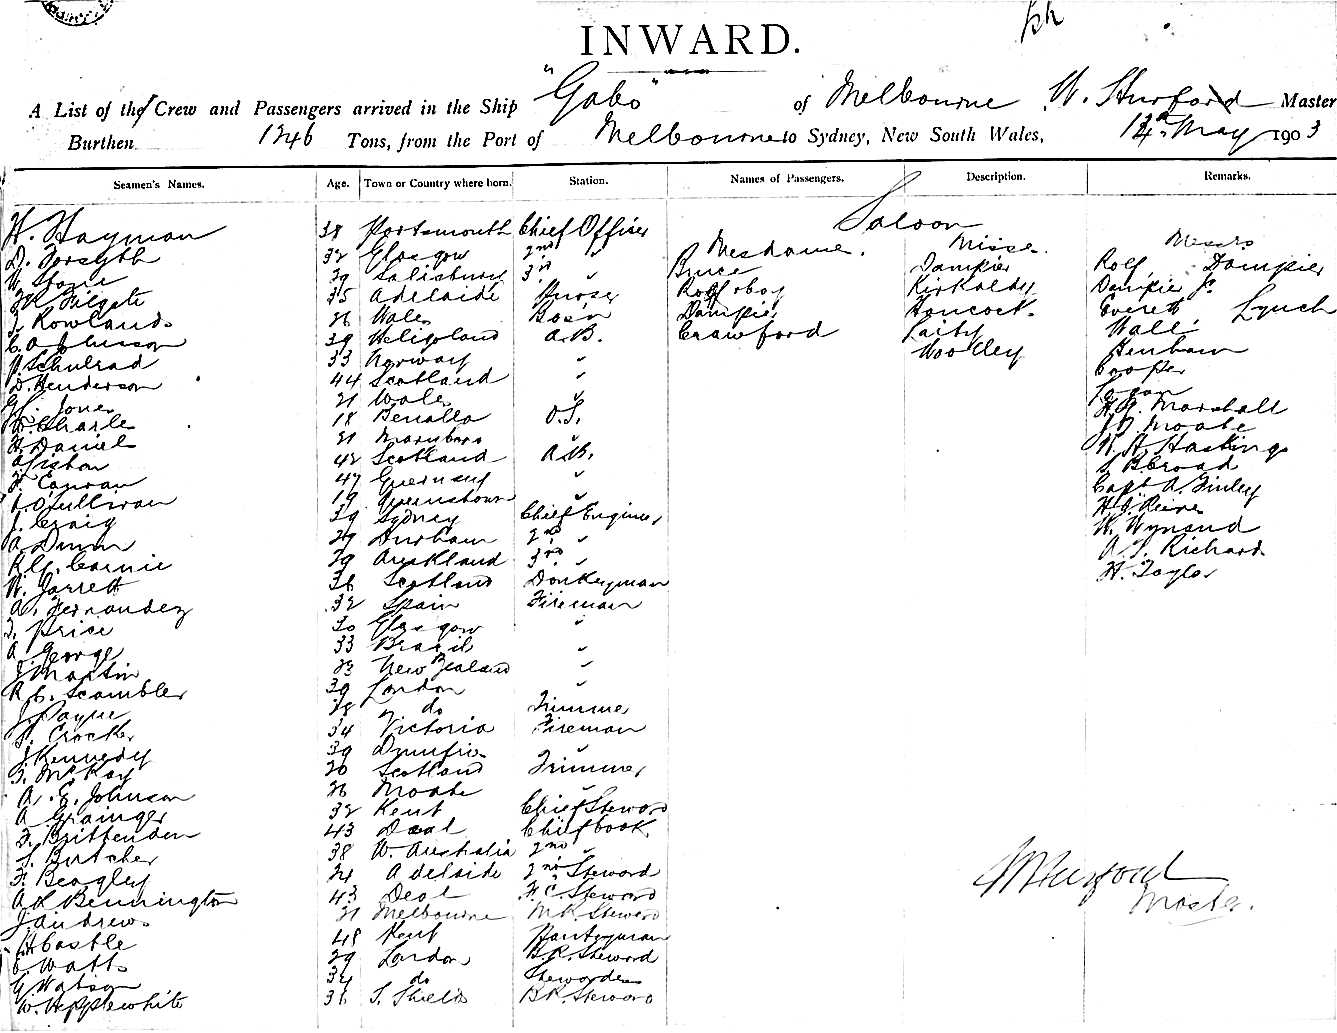 INWARD.
A List of the Crew and Passengers arrived in the Ship "Gabo" of Melbourne W. Hurford Master
Burthen 1246 Tons, from the Port of Melbourne to Sydney, New South Wales, May 1903
Seamen's Names. Age. Town or Country where born. Station. Names of Passengers. Description. Remarks.
Saloon
H. Hayman 38 Portsmouth Chief Officer Mesdame. Misse. Messrs
D. Forsyth 32 Glasgow 2nd " Bruce Dampier Rolf Dampier
W. 39 Salisbury 3rd " Kirkaldy Dampier Jr
Filgate 35 Adelaide Dampier Hancock. Everett Lynch
Rowlands 26 Wales Bosn Crawford Laity Wall
C. A. Johnson 39 Heligoland A.B. Woolley Henham
Schulrad 33 Norway " Cooper
D. Henderson 44 Scotland " Logan
Jones 21 Wales " H. G. Marshall
Charle 18 Benalla O.S. Moate
H. Daniel 21 Maryboro " Hastings
Liston 42 Scotland A.B. S. Broad
47 Guernsey " Capt A. Finley
O'Sullivan 19 Queenstown "
J. Craig 39 Sydney Chief Engineer W. Wynand
A. Dunn 29 Durham 2nd " Richard
R. G. Cairnie 29 Auckland 3rd " H. Taylor
W. Jarrett 36 Scotland Donkeyman
A. Fernandez 32 Spain Fireman
Price 30 Glasgow "
A George 33 Brazil "
J. Martin 23 New Zealand "
R. C. Scambler 39 London "
J. Payne 28 do Trimmer
Crocker 34 Victoria Fireman
J Kennedy 39 Dumfries "
McKay 20 Scotland Trimmer
A. E. Johnson 26 Moate "
A Grainger 32 Kent Chief Steward
Brittenden 43 Deal Chief Cook
S. Butcher 38 W. Australia 2nd "
F. Beagley 24 Adelaide 2nd Steward
A L Bennington 43 Deal F.C. Steward
J. Andrews 21 Melbourne Steward
H Castle 48 Kent Pantryman
Watts 29 London B.R. Steward
G Watson 34 do Stewardess
W. Applewhite 36 S. Shields B.R. Steward
W Hurford
Master.